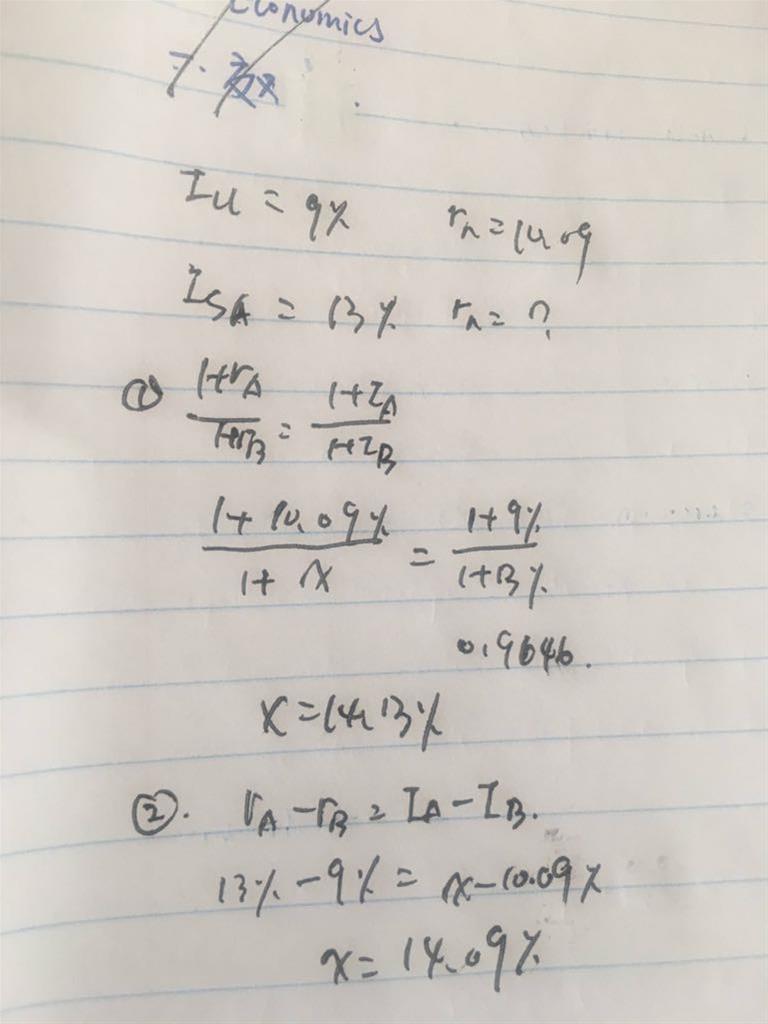 Economics
I u = 9% rn = 10.09
I SA = 13% rn = ?
① (1+rA)/(1+rB) = (1+IA)/(1+IB)
(1+10.09%)/(1+x) = (1+9%)/(1+13%)
0.9646.
x = 14.13%
②. rA - rB = IA - IB.
13% - 9% = x - 10.09%
x = 14.09%